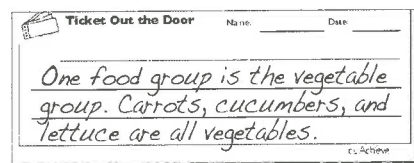 Ticket Out the Door Name: Date:
One food group is the vegetable
group. Carrots, cucumbers, and
lettuce are all vegetables.
Achieve